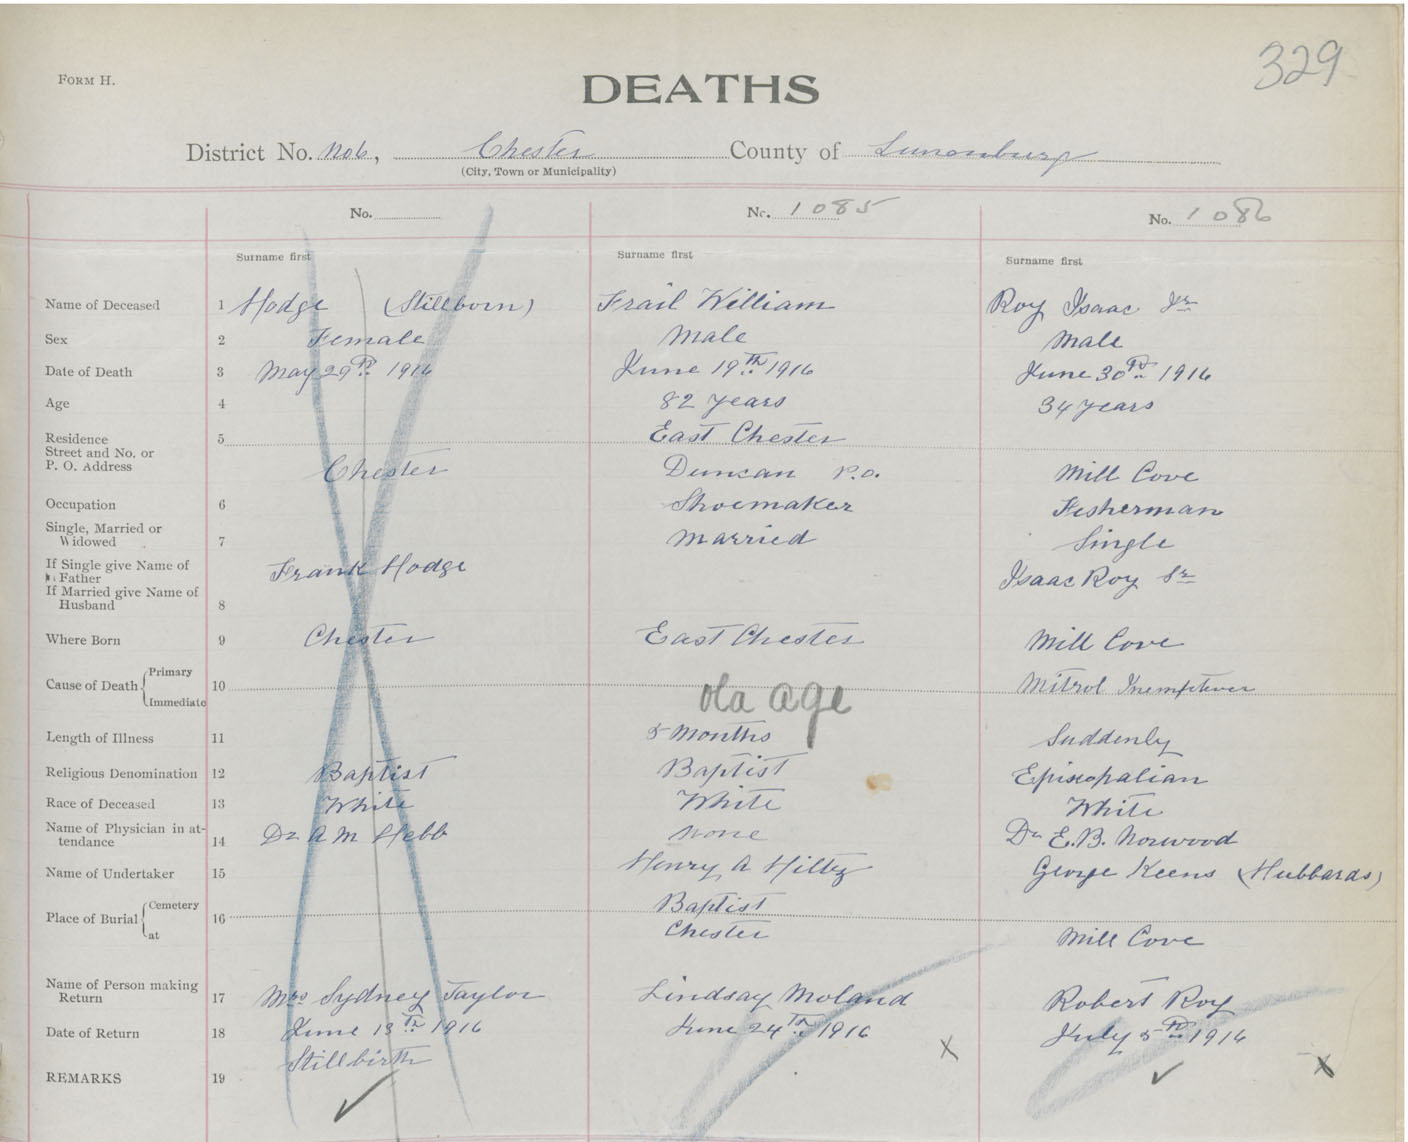 329
FORM H.
DEATHS
District No. No6, Chester County of Lunenburg
(City, Town or Municipality)
No. No. 1085 No. 1086
Surname first Surname first Surname first
Name of Deceased 1 Hodge (Stillborn) Frail William Roy Isaac Jr
Sex 2 Female Male Male
Date of Death 3 May 29th 1916 June 19th 1916 June 30th 1916
Age 4 82 years 34 years
Residence 5 East Chester
Street and No. or
P. O. Address Chester Duncan P.O. Mill Cove
Occupation 6 Shoemaker Fisherman
Single, Married or
Widowed 7 Married Single
If Single give Name of
Father Frank Hodge Isaac Roy Sr
If Married give Name of
Husband 8
Where Born 9 Chester East Chester Mill Cove
Cause of Death Primary
10 old age Mitrol
Immediate
Length of Illness 11 5 months Suddenly
Religious Denomination 12 Baptist Baptist Episcopalian
Race of Deceased 13 White White White
Name of Physician in at-
tendance 14 Dr A M Hebb None Dr E.B. Norwood
Name of Undertaker 15 Henry A Hiltz George Keens (Hubbards)
Place of Burial Cemetery 16 Baptist
at Chester Mill Cove
Name of Person making
Return 17 Mrs Sydney Taylor Lindsay Moland Robert Roy
Date of Return 18 June 13th 1916 June 24th 1916 July 5th 1916
Stillbirth
REMARKS 19